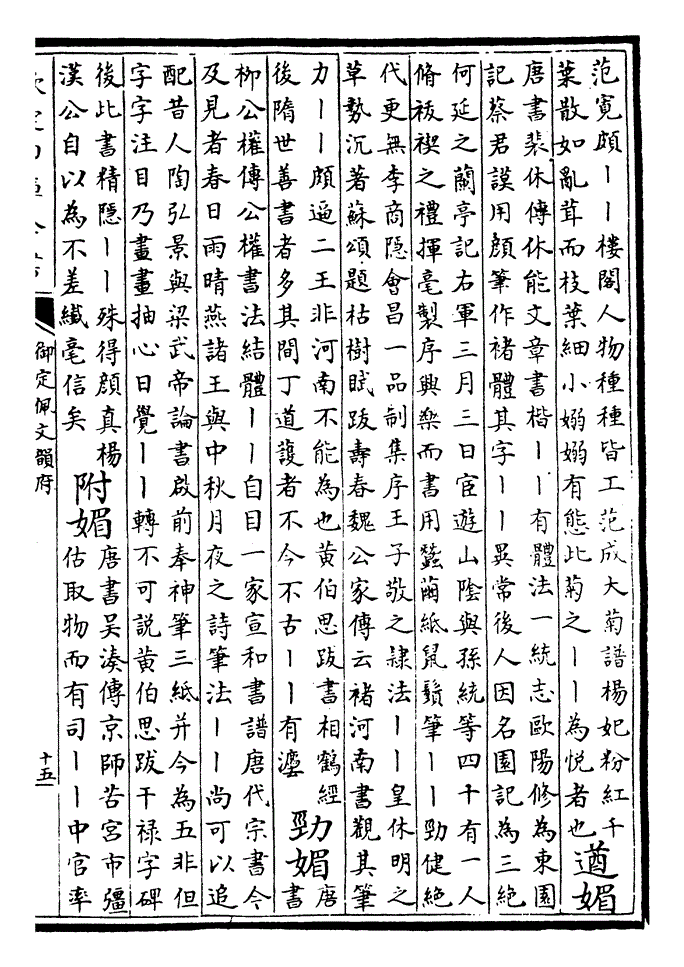 范寛頗丨丨樓閣人物種種皆工范成大菊譜楊妃粉紅千
葉散如亂茸而枝葉細小嫋嫋有態此菊之丨丨為悦者也
遒媚
唐書裴休傳休能文章書楷丨丨有體法一統志歐陽修為東園
記蔡君謨用顔筆作褚體其字丨丨異常後人因名園記為三絶
何延之蘭亭記右軍三月三日宦遊山陰與孫統等四十有一人
脩祓禊之禮揮毫製序興樂而書用蠶繭紙鼠鬚筆丨丨勁健絶
代更無李商隱會昌一品制集序王子敬之隸法丨丨皇休明之
草勢沉著蘇頌題枯樹賦跋壽春魏公家傳云褚河南書觀其筆
力丨丨頗逼二王非河南不能為也黄伯思跋書相鶴經
後隋世善書者多其間丁道護者不今不古丨丨有瀍
勁媚
唐
書
柳公權傳公權書法結體丨丨自目一家宣和書譜唐代宗書今
及見者春日雨晴燕諸王與中秋月夜之詩筆法丨丨尚可以追
配昔人陶弘景與梁武帝論書啟前奉神筆三紙并今為五非但
字字注目乃畫畫抽心日覺丨丨轉不可説黄伯思跋干禄字碑
後此書精隱丨丨殊得顔真楊
漢公自以為不差纎毫信矣
附媚
唐書吴湊傳京師苦宮市彊
估取物而有司丨丨中官率
御定佩文韻府
十五